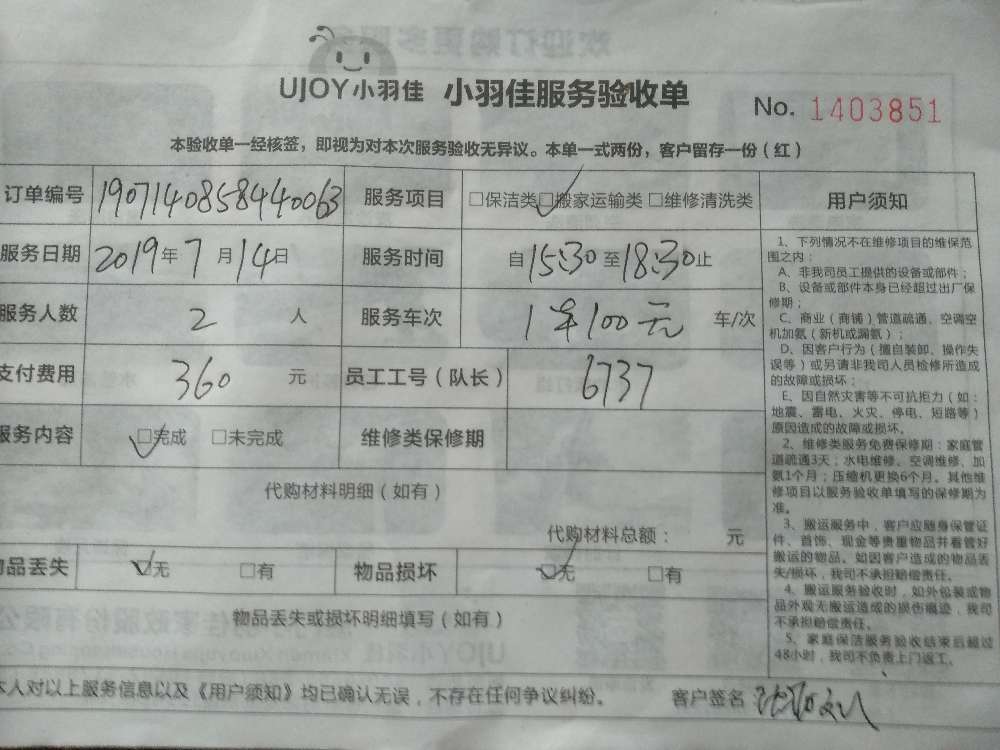 UJOY小羽佳 小羽佳服务验收单
No. 1403851
本验收单一经核签，即视为对本次服务验收无异议。本单一式两份，客户留存一份（红）
订单编号 1907140858440063 服务项目 □保洁类 □搬家运输类 □维修清洗类 用户须知
服务日期 2019年7月14日 服务时间 自15:30至18:30止
服务人数 2 人 服务车次 1车100元 车/次
支付费用 360 元 员工工号（队长） 6737
服务内容 □完成 □未完成 维修类保修期
代购材料明细（如有）
代购材料总额： 元
物品丢失 □无 □有 物品损坏 □无 □有
物品丢失或损坏明细填写（如有）
本人对以上服务信息以及《用户须知》均已确认无误，不存在任何争议纠纷。 客户签名
1、下列情况不在维修项目的维保范
围之内：
A、非我司员工提供的设备或部件；
B、设备或部件本身已经超过出厂保
修期；
C、商业（商铺）管道疏通、空调空
机加氨（新机或漏氨）；
D、因客户行为（擅自装卸、操作失
误等）或另请非我司人员检修所造成
的故障或损坏；
E、因自然灾害等不可抗拒力（如：
地震、雷电、火灾、停电、短路等）
原因造成的故障或损坏。
2、维修类服务免费保修期：家庭管
道疏通3天；水电维修、空调维修、加
氨1个月；压缩机更换6个月。其他维
修项目以服务验收单填写的保修期为
准。
3、搬运服务中，客户应随身保管证
件、首饰、现金等贵重物品并看管好
搬运的物品。如因客户造成的物品丢
失/损坏，我司不承担赔偿责任。
4、搬运服务验收时，如外包装或物
品外观无搬运造成的损伤痕迹，我司
不承担赔偿责任。
5、家庭保洁服务验收结束后超过
48小时，我司不负责上门返工。